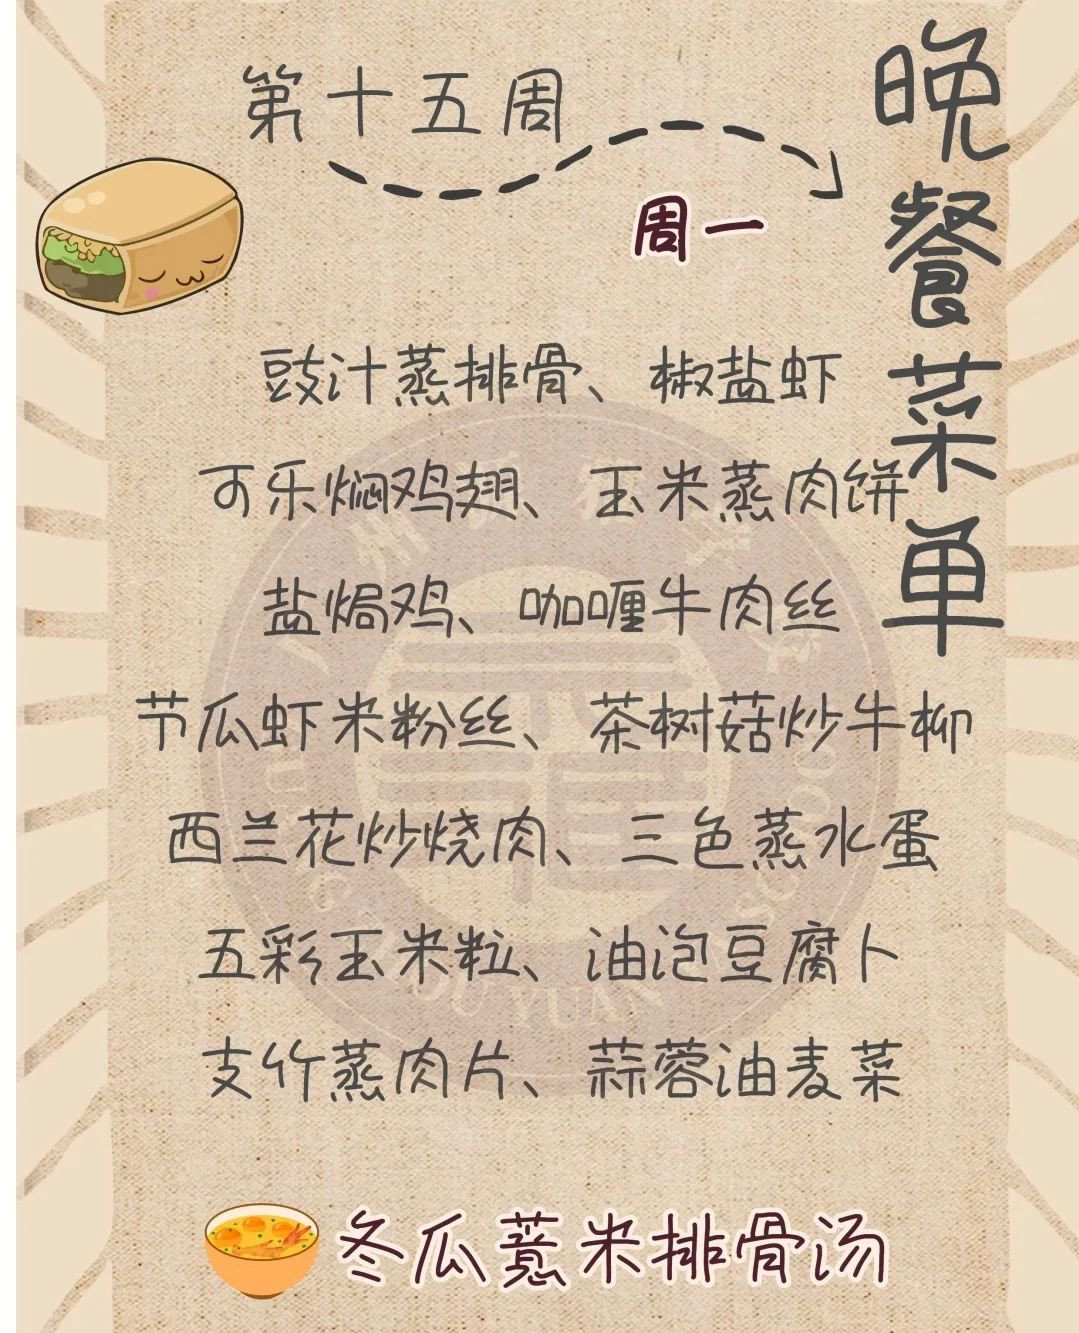 第十五周
晚餐菜单
周一
豉汁蒸排骨、椒盐虾
可乐焖鸡翅、玉米蒸肉饼
盐焗鸡、咖喱牛肉丝
节瓜虾米粉丝、茶树菇炒牛柳
西兰花炒烧肉、三色蒸水蛋
五彩玉米粒、油泡豆腐卜
支竹蒸肉片、蒜蓉油麦菜
冬瓜薏米排骨汤